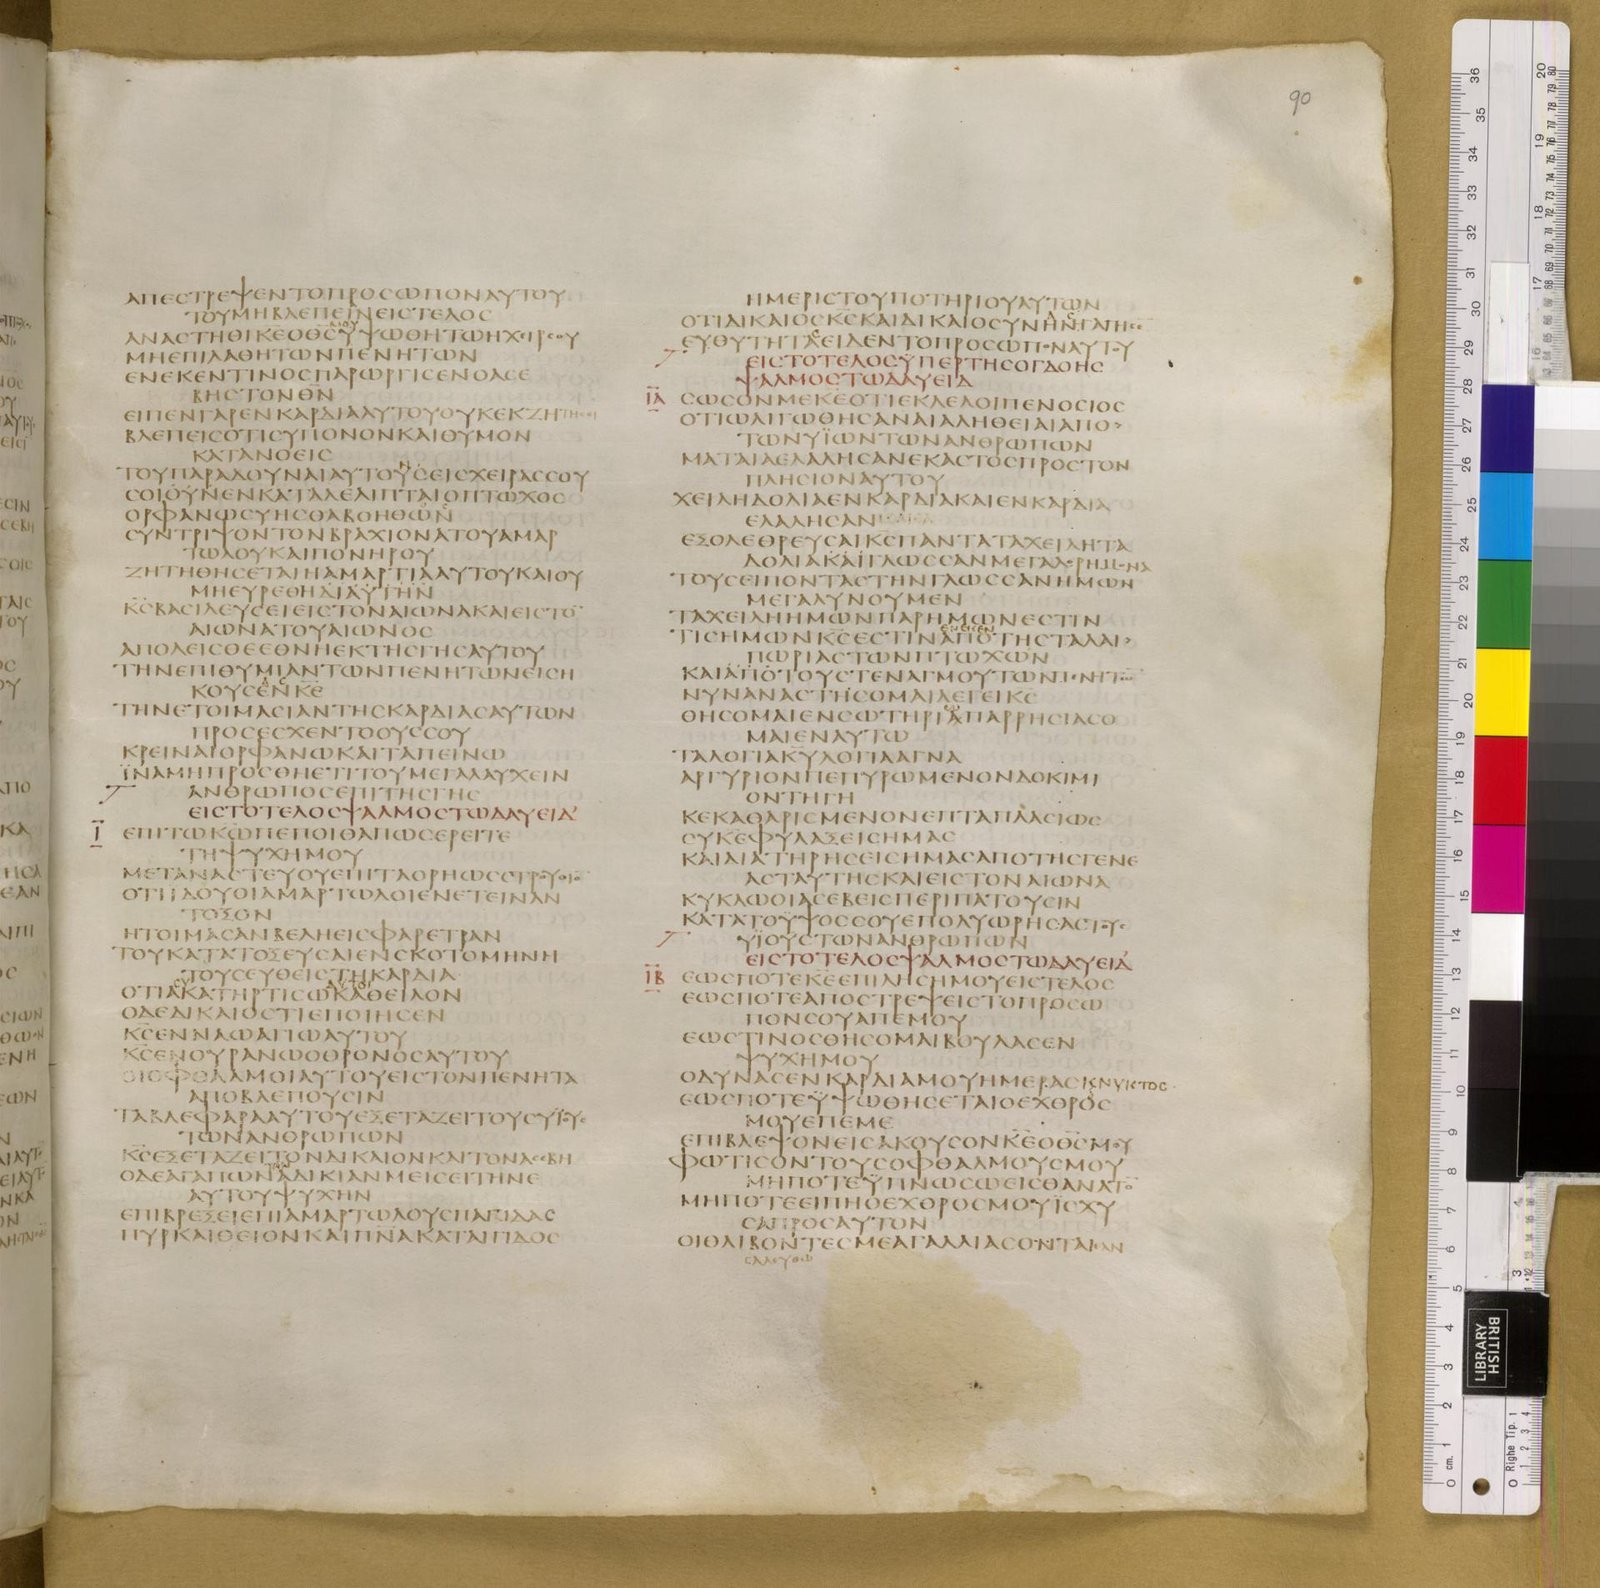 90
ΑΠΕСΤΡΕΨΕΝΤΟΠΡΟСΩΠΟΝΑΥΤΟΥ
ΤΟΥΜΗΒΛΕΠΕΙΝΕΙСΤΕΛΟС
ΑΝΑСΤΗΘΙΚΕΟΘСΥΨΩΘΗΤΩΗΧΙΡСΟΥ
ΜΗΕΠΙΛΑΘΗΤΩΝΠΕΝΗΤΩΝ
ΕΝΕΚΕΝΤΙΝΟСΠΑΡΩΡΓΙСΕΝΟΑСΕ
ΒΗСΤΟΝΘΝ
ΕΙΠΕΝΓΑΡΕΝΚΑΡΔΙΑΑΥΤΟΥΟΥΚΕΚΖΗΤΗСΙ
ΒΛΕΠΕΙСΟΤΙСΥΠΟΝΟΝΚΑΙΘΥΜΟΝ
ΚΑΤΑΝΟΕΙС
ΤΟΥΠΑΡΑΔΟΥΝΑΙΑΥΤΟΥСΕΙСΧΕΙΡΑССΟΥ
СΟΙΟΥΝΕΝΚΑΤΑΛΕΛΙΠΤΑΙΟΠΤΩΧΟС
ΟΡΦΑΝΩСΥΗСΘΑΒΟΗΘΩΝ
СΥΝΤΡΙΨΟΝΤΟΝΒΡΑΧΙΟΝΑΤΟΥΑΜΑΡ
ΤΩΛΟΥΚΑΙΠΟΝΗΡΟΥ
ΖΗΤΗΘΗСΕΤΑΙΗΑΜΑΡΤΙΑΑΥΤΟΥΚΑΙΟΥ
ΜΗΕΥΡΕΘΗΔΙΑΥΤΗΝ
ΚСΒΑСΙΛΕΥСΕΙΕΙСΤΟΝΑΙΩΝΑΚΑΙΕΙСΤΟ
ΑΙΩΝΑΤΟΥΑΙΩΝΟС
ΑΠΟΛΕΙСΘΕΕΘΝΗΕΚΤΗСΓΗСΑΥΤΟΥ
ΤΗΝΕΠΙΘΥΜΙΑΝΤΩΝΠΕΝΗΤΩΝΕΙСΗ
ΚΟΥСΕΝΚΕ
ΤΗΝΕΤΟΙΜΑСΙΑΝΤΗСΚΑΡΔΙΑСΑΥΤΩΝ
ΠΡΟСΕСΧΕΝΤΟΟΥССΟΥ
ΚΡΕΙΝΑΙΟΡΦΑΝΩΚΑΙΤΑΠΕΙΝΩ
ΪΝΑΜΗΠΡΟСΘΗΕΤΙΤΟΥΜΕΓΑΛΑΥΧΕΙΝ
ΑΝΘΡΩΠΟСΕΠΙΤΗСΓΗС
ΕΙСΤΟΤΕΛΟСΨΑΛΜΟСΤΩΔΑΥΕΙΔ
Ι ΕΠΙΤΩΚΩΠΕΠΟΙΘΑΠΩСΕΡΕΙΤΕ
ΤΗΨΥΧΗΜΟΥ
ΜΕΤΑΝΑСΤΕΥΟΥΕΠΙΤΑΟΡΗΩССΤΡΟΥΘΙΟ
ΟΤΙΪΔΟΥΟΙΑΜΑΡΤΩΛΟΙΕΝΕΤΕΙΝΑΝ
ΤΟΞΟΝ
ΗΤΟΙΜΑСΑΝΒΕΛΗΕΙСΦΑΡΕΤΡΑΝ
ΤΟΥΚΑΤΑΤΟΞΕΥСΑΙΕΝСΚΟΤΟΜΗΝΗ
ΤΟΥСΕΥΘΕΙСΤΗΚΑΡΔΙΑ
ΟΤΙΑΚΑΤΗΡΤΙСΩΚΑΘΕΙΛΟΝ
ΟΔΕΔΙΚΑΙΟСΤΙΕΠΟΙΗСΕΝ
ΚСΕΝΝΑΩΑΓΙΩΑΥΤΟΥ
ΚСΕΝΟΥΡΑΝΩΟΘΡΟΝΟСΑΥΤΟΥ
ΟΙΟΦΘΑΛΜΟΙΑΥΤΟΥΕΙСΤΟΝΠΕΝΗΤΑ
ΑΠΟΒΛΕΠΟΥСΙΝ
ΤΑΒΛΕΦΑΡΑΑΥΤΟΥΕΞΕΤΑΖΕΙΤΟΥСΥΪΟΥС
ΤΩΝΑΝΘΡΩΠΩΝ
ΚСΕΞΕΤΑΖΕΙΤΟΝΔΙΚΑΙΟΝΚΑΙΤΟΝΑСΕΒΗ
ΟΔΕΑΓΑΠΩΝΑΔΙΚΙΑΝΜΕΙСΕΙΤΗΝΕ
ΑΥΤΟΥΨΥΧΗΝ
ΕΠΙΒΡΕΞΕΙΕΠΙΑΜΑΡΤΩΛΟΥСΠΑΓΙΔΑС
ΠΥΡΚΑΙΘΕΙΟΝΚΑΙΠΝΑΚΑΤΑΙΓΙΔΟС
ΗΜΕΡΙСΤΟΥΠΟΤΗΡΙΟΥΑΥΤΩΝ
ΟΤΙΔΙΚΑΙΟСΚСΚΑΙΔΙΚΑΙΟСΥΝΗΝΗΓΑΠΗС
ΕΥΘΥΤΗΤΑΕΙΔΕΝΤΟΠΡΟСΩΠΟΝΑΥΤΟΥ
ΕΙСΤΟΤΕΛΟСΫΠΕΡΤΗСΟΓΔΟΗС
ΨΑΛΜΟСΤΩΔΑΥΕΙΔ
ΙΑ СΩСΟΝΜΕΚΕΟΤΙΕΚΛΕΛΟΙΠΕΝΟСΙΟС
ΟΤΙΩΛΙΓΩΘΗСΑΝΑΙΑΛΗΘΕΙΑΙΑΠΟ>
ΤΩΝΥΪΩΝΤΩΝΑΝΘΡΩΠΩΝ
ΜΑΤΑΙΑΕΛΑΛΗСΑΝΕΚΑСΤΟСΠΡΟСΤΟΝ
ΠΛΗСΙΟΝΑΥΤΟΥ
ΧΕΙΛΗΔΟΛΙΑΕΝΚΑΡΔΙΑΚΑΙΕΝΚΑΡΔΙΑ
ΕΛΑΛΗСΑΝ
ΕΞΟΛΕΘΡΕΥСΑΙΚСΠΑΝΤΑΤΑΧΕΙΛΗΤΑ
ΔΟΛΙΑΚΑΙΓΛΩССΑΝΜΕΓΑΛΟΡΗΜΟΝΑ
ΤΟΥСΕΙΠΟΝΤΑСΤΗΝΓΛΩССΑΝΗΜΩΝ
ΜΕΓΑΛΥΝΟΥΜΕΝ
ΤΑΧΕΙΛΗΗΜΩΝΠΑΡΗΜΩΝΕСΤΙΝ
ΤΙСΗΜΩΝΚСΕСΤΙΝΑΠΟΤΗСΤΑΛΑΙ>
ΠΩΡΙΑСΤΩΝΠΤΩΧΩΝ
ΚΑΙΑΠΟΤΟΥСΤΕΝΑΓΜΟΥΤΩΝΠΕΝΗΤΩ
ΝΥΝΑΝΑСΤΗСΟΜΑΙΛΕΓΕΙΚС
ΘΗСΟΜΑΙΕΝСΩΤΗΡΙΑΠΑΡΡΗСΙΑСΟ
ΜΑΙΕΝΑΥΤΩ
ΤΑΛΟΓΙΑΚΥΛΟΓΙΑΑΓΝΑ
ΑΡΓΥΡΙΟΝΠΕΠΥΡΩΜΕΝΟΝΔΟΚΙΜΙ
ΟΝΤΗΓΗ
ΚΕΚΑΘΑΡΙСΜΕΝΟΝΕΠΤΑΠΛΑСΙΩС
СΥΚΕΦΥΛΑΞΕΙСΗΜΑС
ΚΑΙΔΙΑΤΗΡΗСΕΙСΗΜΑСΑΠΟΤΗСΓΕΝΕ
ΑСΤΑΥΤΗСΚΑΙΕΙСΤΟΝΑΙΩΝΑ
ΚΥΚΛΩΟΙΑСΕΒΕΙСΠΕΡΙΠΑΤΟΥСΙΝ
ΚΑΤΑΤΟΫΨΟССΟΥΕΠΟΛΥΩΡΗСΑСΤΟΥС
ΥΪΟΥСΤΩΝΑΝΘΡΩΠΩΝ
ΕΙСΤΟΤΕΛΟСΨΑΛΜΟСΤΩΔΑΥΕΙΔ
ΙΒ ΕΩСΠΟΤΕΚΕΕΠΙΛΗСΗΜΟΥΕΙСΤΕΛΟС
ΕΩСΠΟΤΕΑΠΟСΤΡΕΨΕΙСΤΟΠΡΟСΩ
ΠΟΝСΟΥΑΠΕΜΟΥ
ΕΩСΤΙΝΟСΘΗСΟΜΑΙΒΟΥΛΑСΕΝ
ΨΥΧΗΜΟΥ
ΟΔΥΝΑСΕΝΚΑΡΔΙΑΜΟΥΗΜΕΡΑСΚΝΥΚΤΟС
ΕΩСΠΟΤΕΫΨΩΘΗСΕΤΑΙΟΕΧΘΡΟС
ΜΟΥΕΠΕΜΕ
ΕΠΙΒΛΕΨΟΝΕΙСΑΚΟΥСΟΝΚΕΟΘСΜΟΥ
ΦΩΤΙСΟΝΤΟΥСΟΦΘΑΛΜΟΥСΜΟΥ
ΜΗΠΟΤΕΫΠΝΩСΩΕΙСΘΑΝΑΤΟ
ΜΗΠΟΤΕΕΙΠΗΟΕΧΘΡΟСΜΟΥΪСΧΥ
СΑΠΡΟСΑΥΤΟΝ
ΟΙΘΛΙΒΟΝΤΕСΜΕΑΓΑΛΛΙΑСΟΝΤΑΙΕΑΝ
СΑΛΕΥΘΩ
BRITISH
LIBRARY